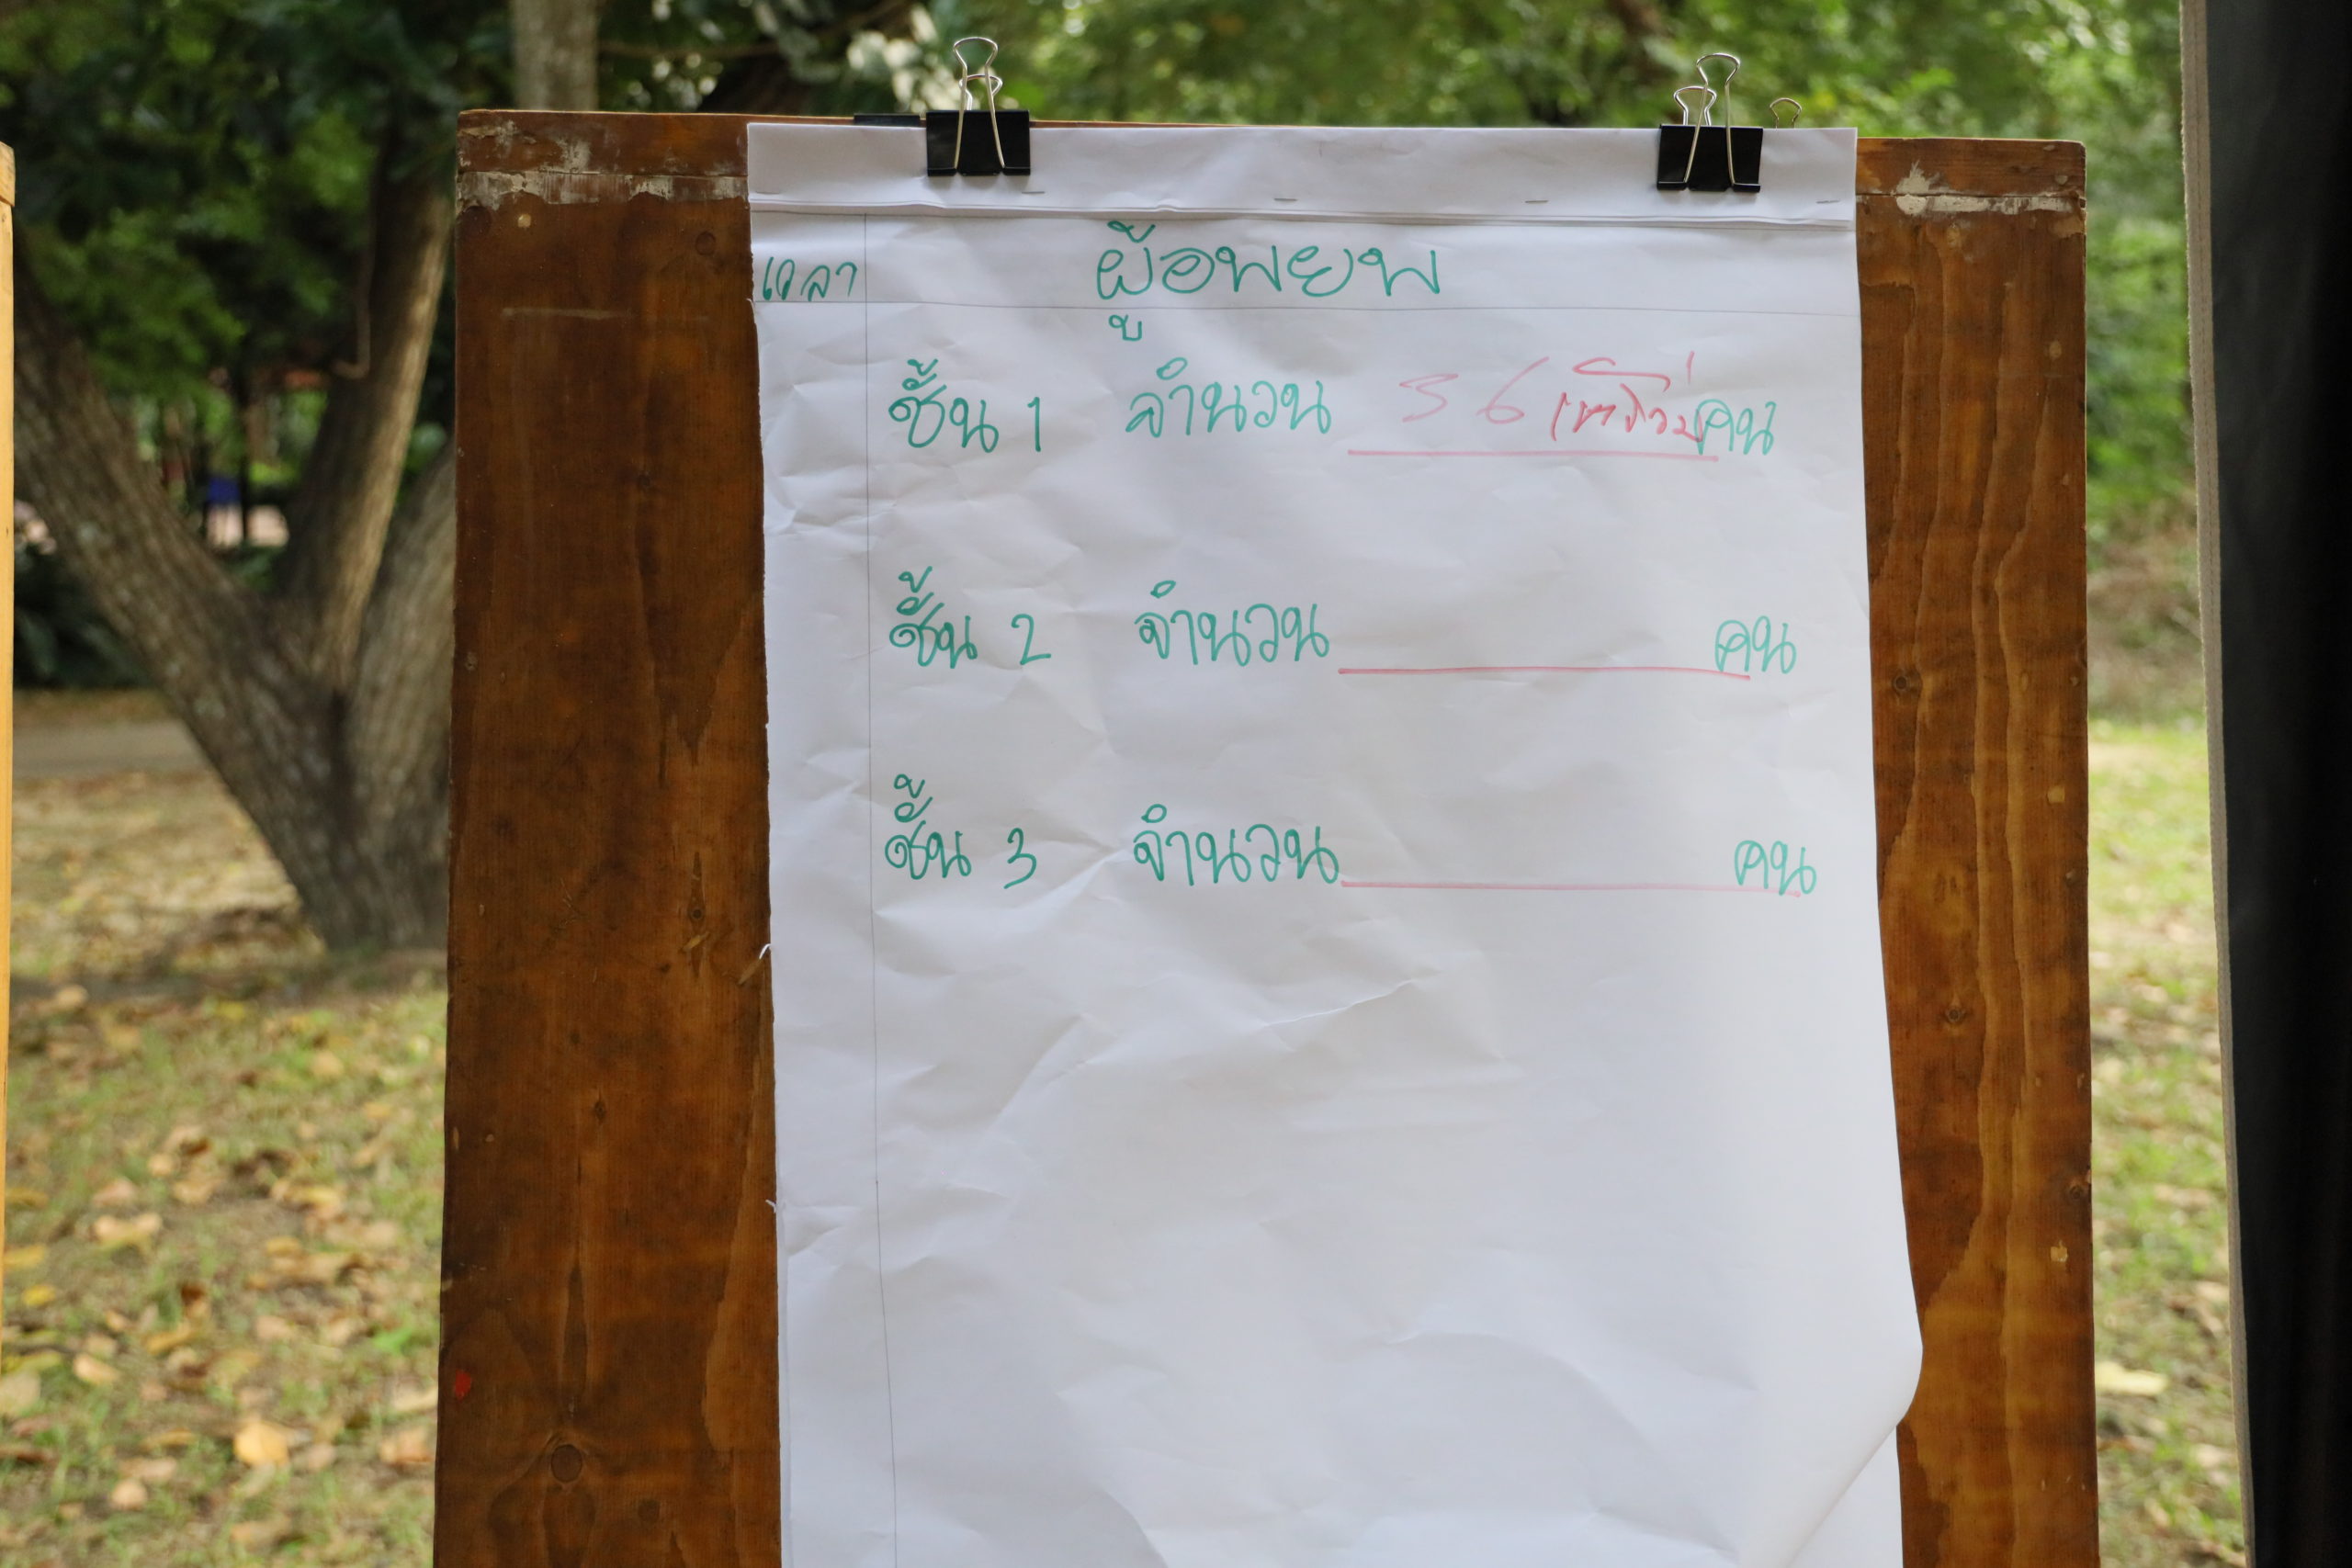 เวลา ผู้อพยพ
ชั้น 1 จำนวน 56 คน
ชั้น 2 จำนวน คน
ชั้น 3 จำนวน คน